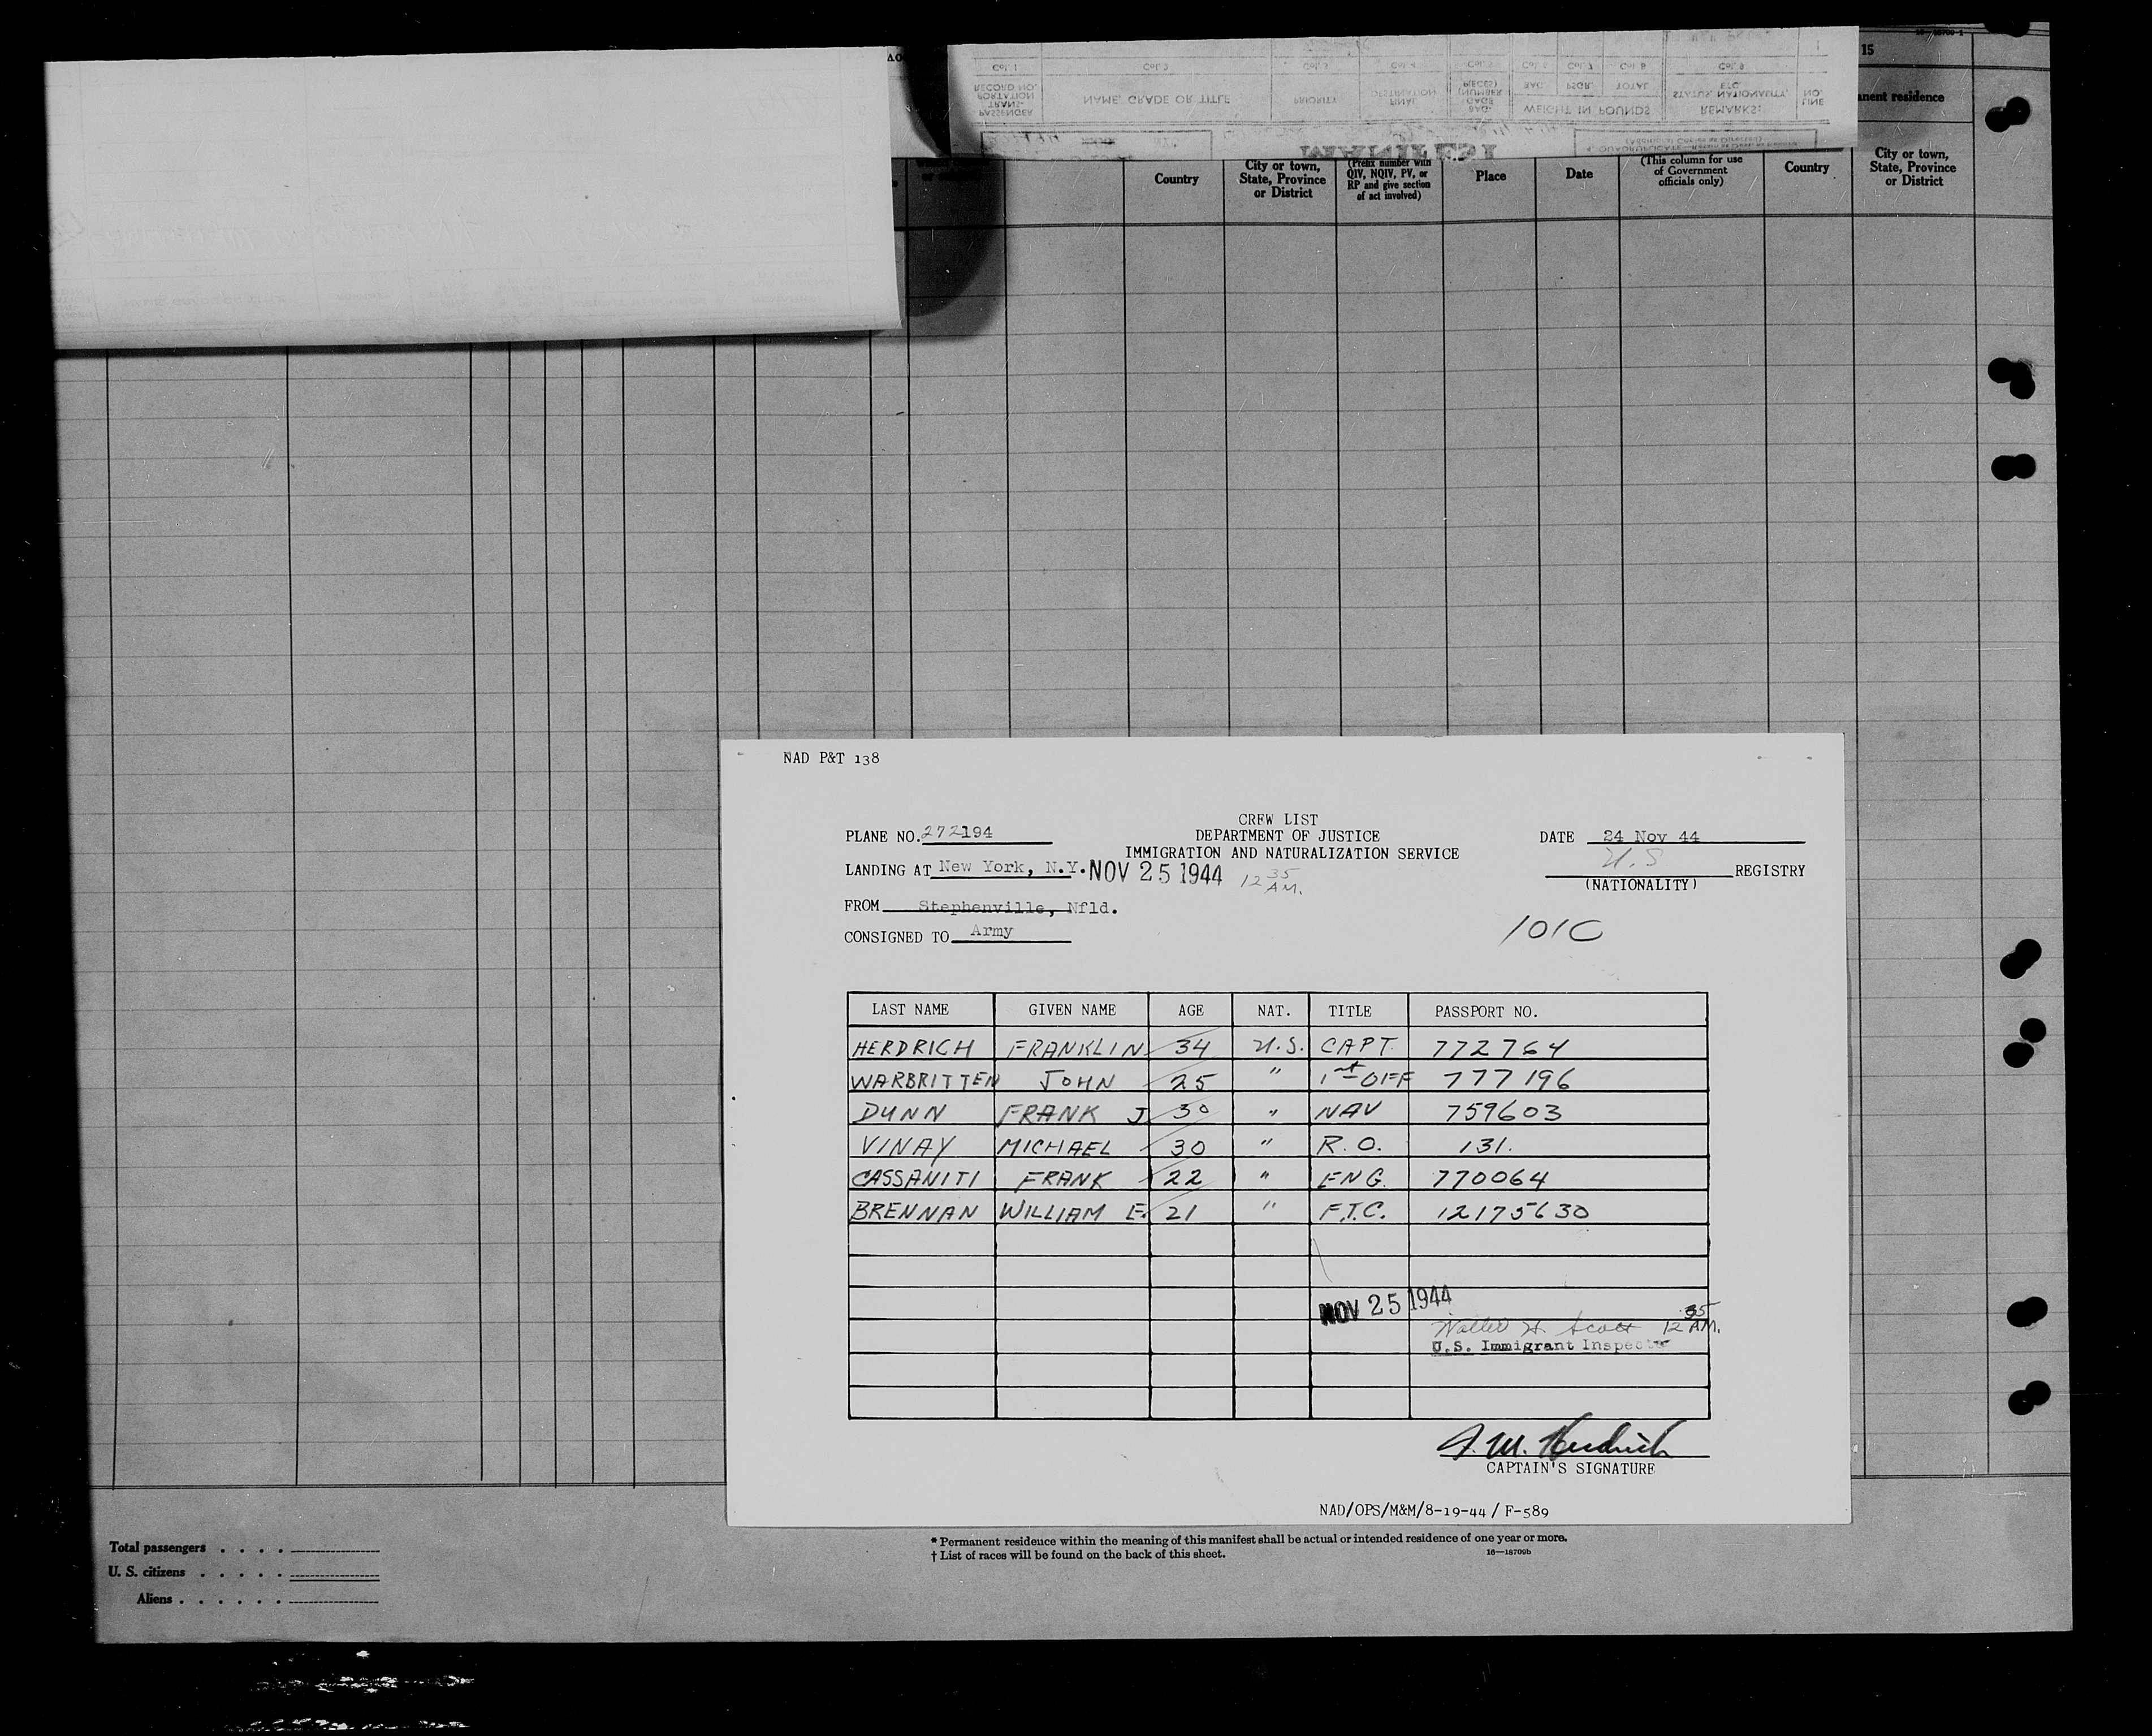 15
nent residence
Country
City or town,
State, Province
or District
(Prefix number with
QIV, NQIV, PV, or
RP and give section
of act involved)
Place
Date
(This column for use
of Government
officials only)
Country
City or town,
State, Province
or District
MANIFEST
PASSENGER
TRANS-
PORTATION
RECORD NO.
NAME, GRADE OR TITLE
PRIORITY
FINAL
DESTINATION
BAG-
GAGE
(NUMBER
PIECES)
WEIGHT IN POUNDS
BAG.
PSGR.
TOTAL
REMARKS:
STATUS, NATIONALITY,
ETC.
LINE
NO.
Col. 1
Col. 2
Col. 3
Col. 4
Col. 5
Col. 6
Col. 7
Col. 8
Col. 9
NAD P&T 138
CREW LIST
DEPARTMENT OF JUSTICE
IMMIGRATION AND NATURALIZATION SERVICE
PLANE NO. 272194
DATE 24 Nov 44
LANDING AT New York, N.Y. NOV 25 1944 12 35 A.M.
U.S REGISTRY
(NATIONALITY)
FROM Stephenville, Nfld.
CONSIGNED TO Army
101C
LAST NAME GIVEN NAME AGE NAT. TITLE PASSPORT NO.
HERDRICH FRANKLIN 34 U.S. CAPT. 772764
WARBRITTEN JOHN 25 " 1st OFF 777196
DUNN FRANK J 30 " NAV 759603
VINAY MICHAEL 30 " R.O. 131.
CASSANITI FRANK 22 " ENG. 770064
BRENNAN WILLIAM E. 21 " F.T.C. 12175630
NOV 25 1944
Walter H. Scott 12 35 A.M.
U.S. Immigrant Inspector
F. M. Herdrich
CAPTAIN'S SIGNATURE
NAD/OPS/M&M/8-19-44 / F-589
Total passengers . . . .
U. S. citizens . . . . .
Aliens . . . . . .
* Permanent residence within the meaning of this manifest shall be actual or intended residence of one year or more.
† List of races will be found on the back of this sheet.
16—18709b